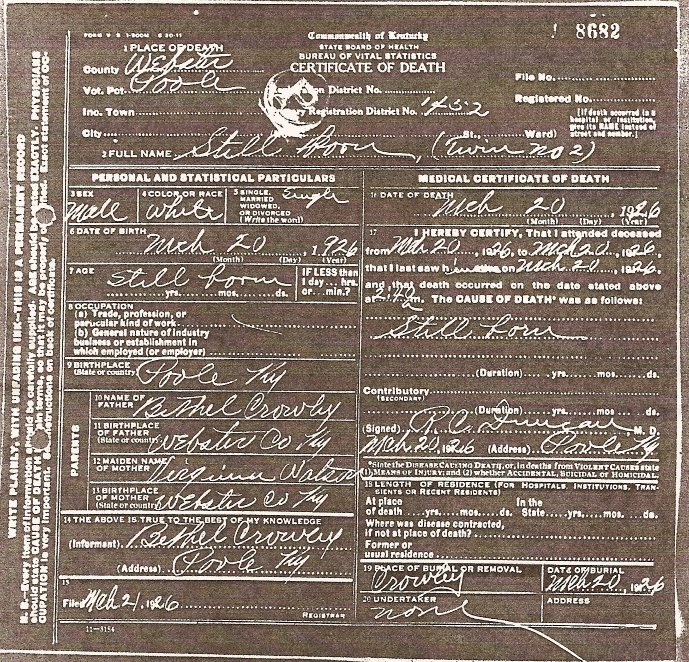 FORM V S 1-500M 6-30-11
1 8682
Commonwealth of Kentucky
STATE BOARD OF HEALTH
BUREAU OF VITAL STATISTICS
CERTIFICATE OF DEATH
1 PLACE OF DEATH
County Webster
Vot. Pct Poole
Registration District No.
File No.
Inc. Town
Primary Registration District No. 1452
Registered No.
City No. St. Ward)
[If death occurred in a hospital or institution, give its NAME instead of street and number.]
2 FULL NAME Still born, (Twin no 2)
PERSONAL AND STATISTICAL PARTICULARS
3 SEX Male
4 COLOR OR RACE white
5 SINGLE, MARRIED WIDOWED, OR DIVORCED (Write the word) Single
6 DATE OF BIRTH Mch 20, 1926
(Month) (Day) (Year)
7 AGE Still born
yrs. mos. ds.
IF LESS than 1 day... hrs. or... min.?
8 OCCUPATION
(a) Trade, profession, or
particular kind of work
(b) General nature of industry
business or establishment in
which employed (or employer)
9 BIRTHPLACE
(State or country) Poole Ky
PARENTS
10 NAME OF FATHER Bethel Crowley
11 BIRTHPLACE OF FATHER (State or country) Webster Co Ky
12 MAIDEN NAME OF MOTHER Virginia Watson
13 BIRTHPLACE OF MOTHER (State or country) Webster Co Ky
14 THE ABOVE IS TRUE TO THE BEST OF MY KNOWLEDGE
(Informant) Bethel Crowley
(Address) Poole Ky
15
Filed Mch 21, 1926
REGISTRAR
11-3184
MEDICAL CERTIFICATE OF DEATH
16 DATE OF DEATH Mch 20, 1926
(Month) (Day) (Year)
17 I HEREBY CERTIFY, That I attended deceased
from Mch 20, 1926, to Mch 20, 1926
that I last saw h on Mch 20, 1926,
and that death occurred on the date stated above
at m. The CAUSE OF DEATH* was as follows:
Still born
(Duration) yrs. mos. ds.
Contributory
(SECONDARY)
(Duration) yrs. mos. ds.
(Signed) R. C. Duncan, M. D.
Mch 20, 1926 (Address) Poole Ky
*State the DISEASE CAUSING DEATH, or, in deaths from VIOLENT CAUSES state
(1) MEANS OF INJURY; and (2) whether ACCIDENTAL, SUICIDAL OR HOMICIDAL.
18 LENGTH OF RESIDENCE (FOR HOSPITALS, INSTITUTIONS, TRANSIENTS OR RECENT RESIDENTS)
At place of death yrs. mos. ds. In the State yrs. mos. ds.
Where was disease contracted,
if not at place of death?
Former or
usual residence
19 PLACE OF BURIAL OR REMOVAL Crowley
DATE OF BURIAL Mch 20, 1926
20 UNDERTAKER none
ADDRESS
WRITE PLAINLY, WITH UNFADING INK—THIS IS A PERMANENT RECORD
N. B.—Every item of information should be carefully supplied. AGE should be stated EXACTLY. PHYSICIANS
should state CAUSE OF DEATH in plain terms, so that it may be properly classified. Exact statement of OC-
CUPATION is very important. See instructions on back of certificate.